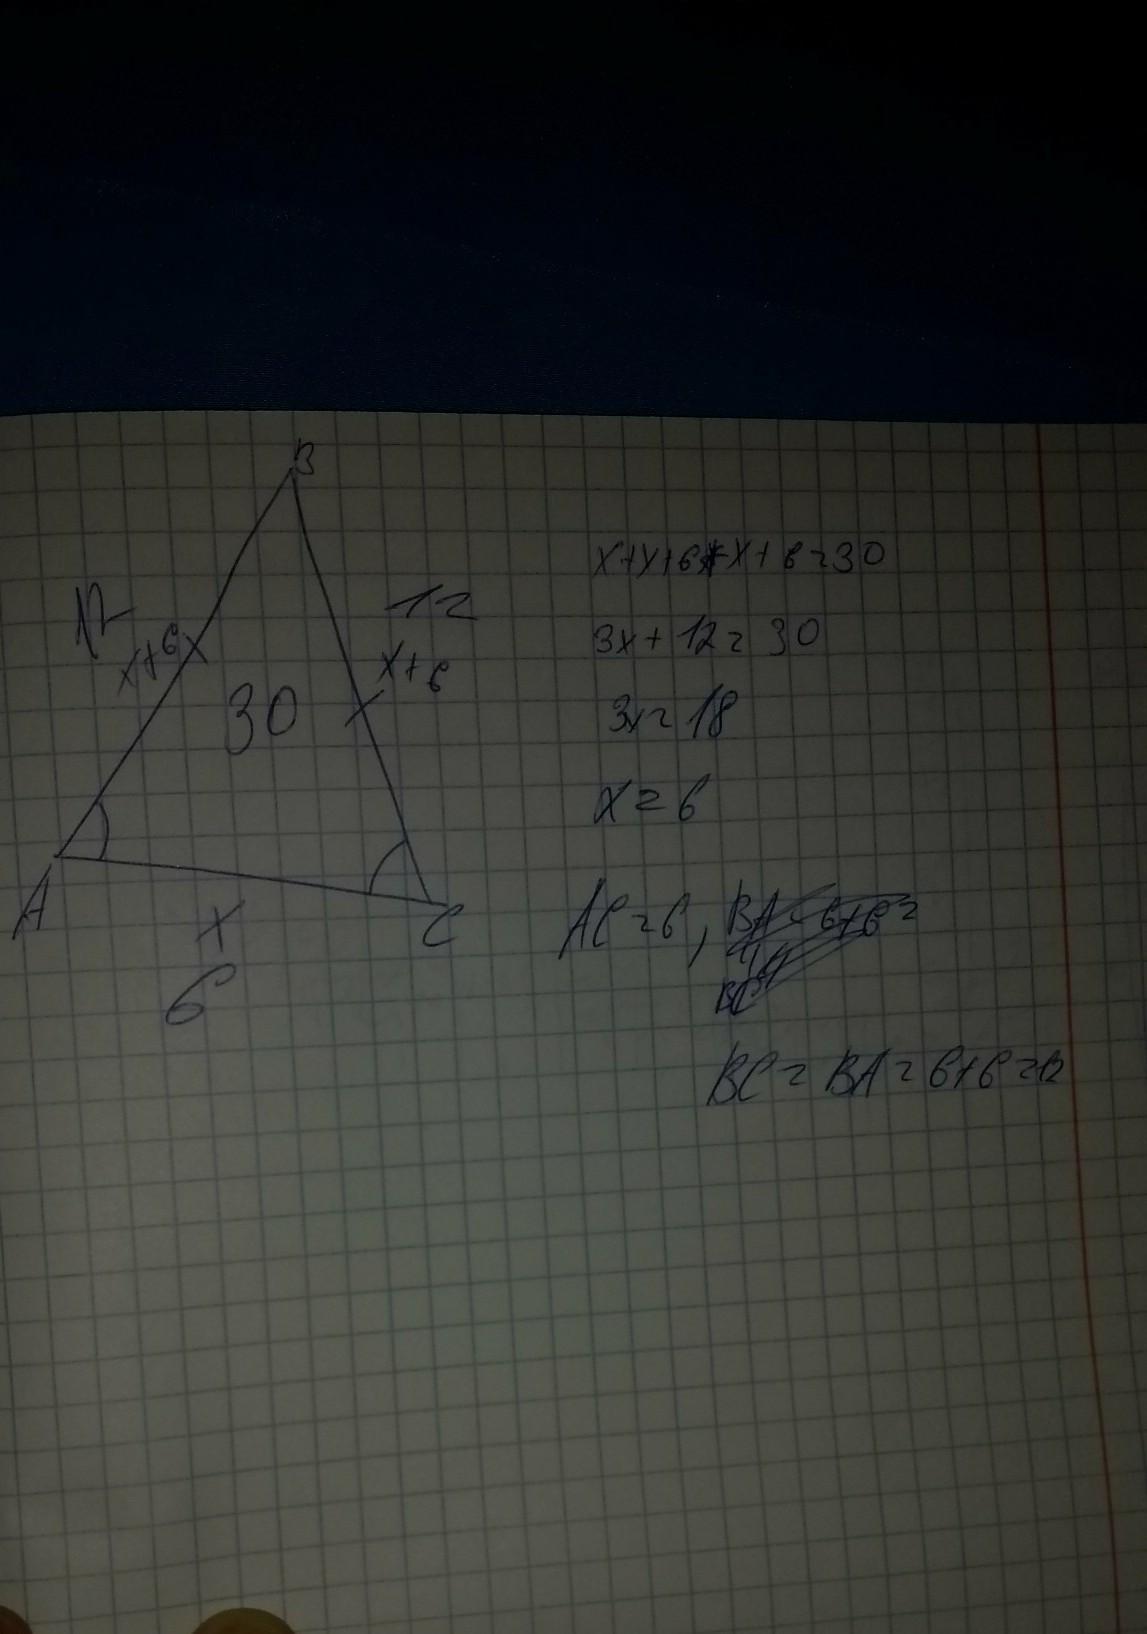 B
12
12
x+6
x+6
30
A
x
C
6
x+x+6+x+6=30
3x+12=30
3x=18
x=6
AC=6,
BC=BA=6+6=12